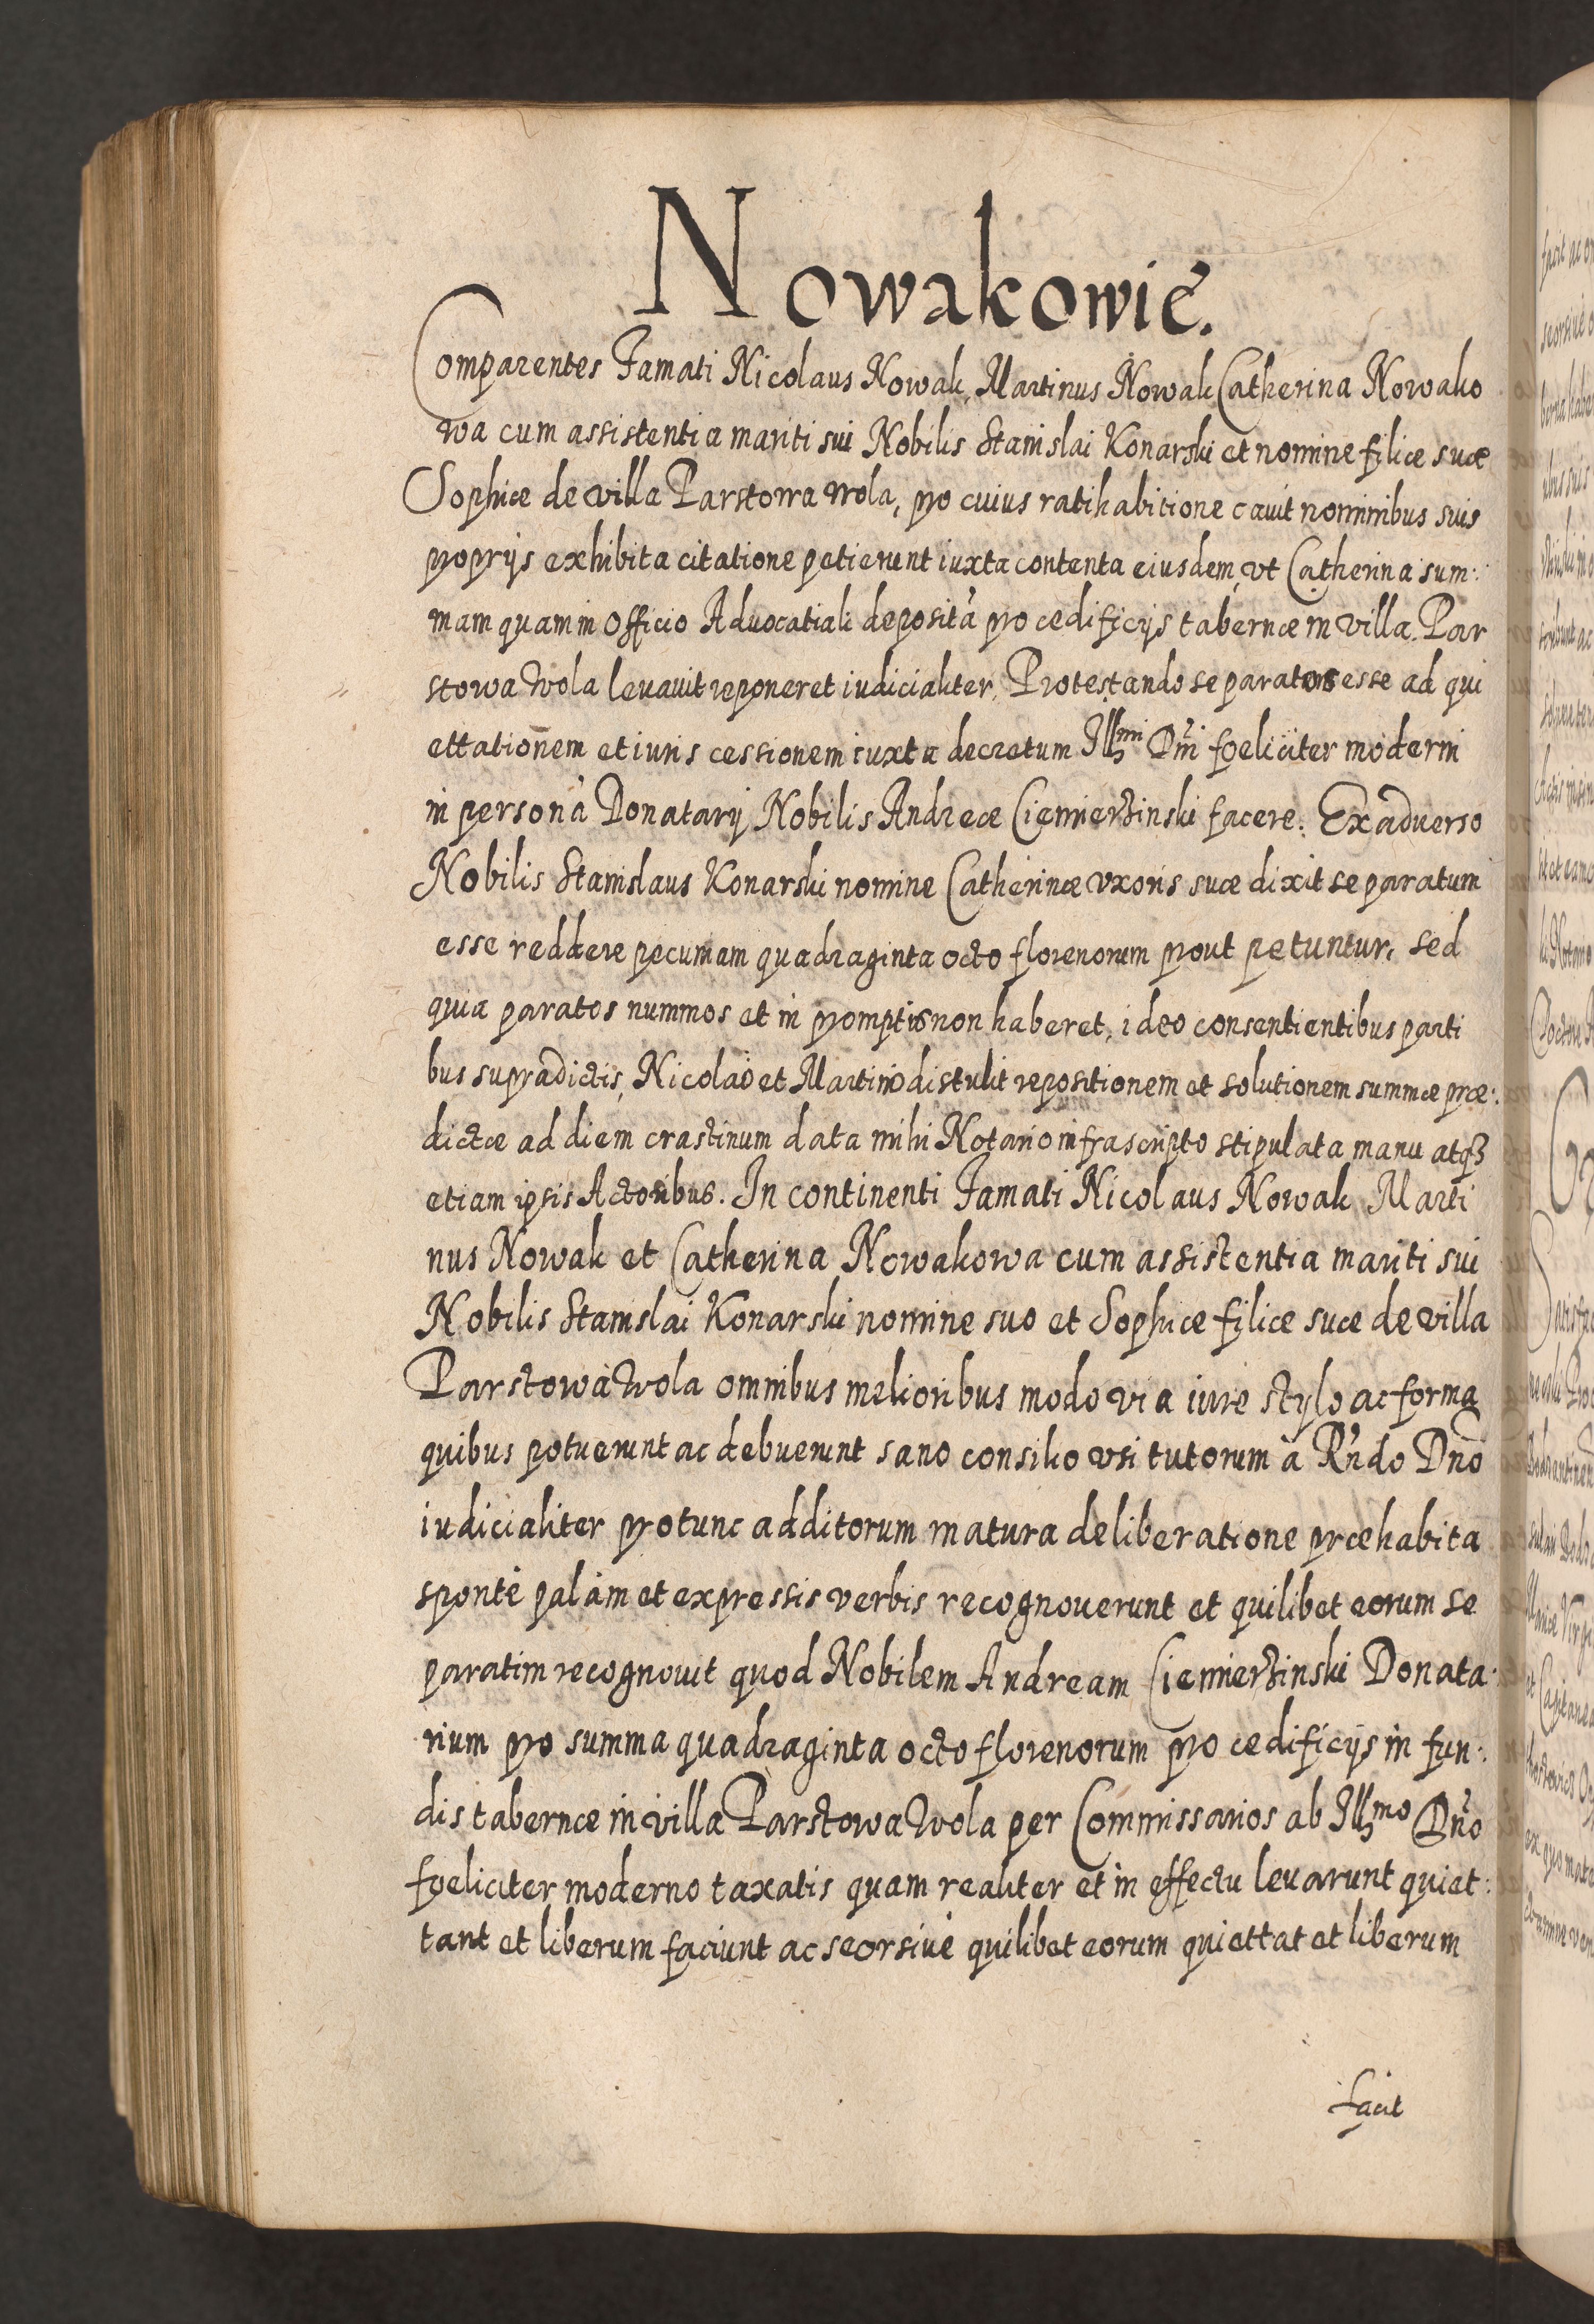 Nowakowie.
Comparentes Famati Nicolaus Nowak, Martinus Nowak Catherina Nowako
wa cum assistentia mariti sui Nobilis Stanislai Konarski et nomine filiæ suæ
Sophiæ de villa Parstowa wola, pro cuius ratihabitione cauit nominibus suis
proprijs exhibita citatione petierunt iuxta contenta eiusdem, vt Catherina sum:
mam quam in Officio Aduocatiali deposità pro ædificijs tabernæ in villa Par
stowa Wola leuauit reponeret iudicialiter, Protestando se paratos esse ad qui
ettationem et iuris cessionem iuxta decretum Illmi Dni foeliciter moderni
in personà Donatarij Nobilis Andreæ Ciemierzinski facere. Ex aduerso
Nobilis Stanislaus Konarski nomine Catherinæ vxoris suæ dixit se paratum
esse reddere pecuniam quadraginta octo florenorum prout petuntur, sed
quia paratos nummos et in promptis non haberet, ideo consentientibus parti
bus supradictis, Nicolao et Martino distulit repositionem et solutionem summæ præ:
dictæ ad diem crastinum data mihi Notario infrascripto stipulata manu atqʒ
etiam ipsis Actoribus. In continenti Famati Nicolaus Nowak Marti
nus Nowak et Catherina Nowakowa cum assistentia mariti sui
Nobilis Stanislai Konarski nomine suo et Sophiæ filiæ suæ de villa
Parstowa Wola omnibus melioribus modo via iure stylo ac forma
quibus potuerunt ac debuerunt sano consilio vsi tutorum à Rndo Dno
iudicialiter protunc additorum matura deliberatione præhabita
spontè palàm et expressis verbis recognouerunt et quilibet eorum se
paratim recognouit quod Nobilem Andream Ciemierzinski Donata:
rium pro summa quadraginta octo florenorum pro ædificijs in fun:
dis tabernæ in villa Parstowa Wola per Commissarios ab Illmo Dno
foeliciter moderno taxatis quam realiter et in effectu leuarunt quiet:
tant et liberum faciunt ac seorsiuè quilibet eorum quiettat et liberum
facit